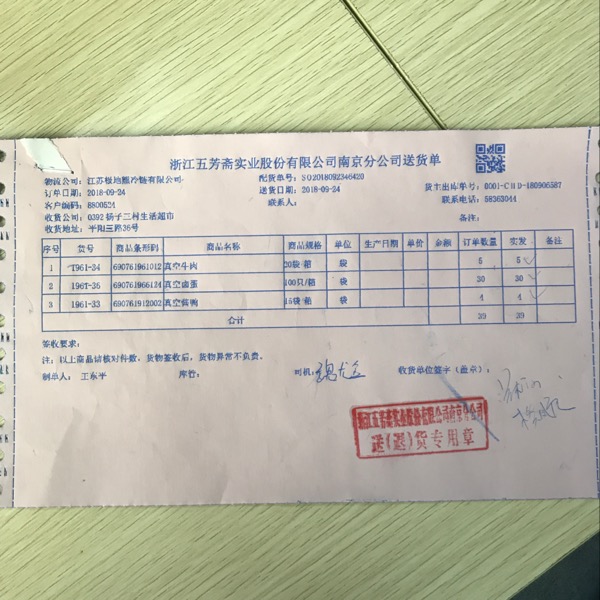 浙江五芳斋实业股份有限公司南京分公司送货单
物流公司: 江苏极地熊冷链有限公司 配货单号: SO2018092346420
订单日期: 2018-09-24 送货日期: 2018-09-24 货主出库单号: 0001-CHD-180906587
客户编码: 8800524 联系人: 联系电话: 58363044
收货公司: 0392 扬子二村生活超市 备注:
收货地址: 平阳三路36号
序号 货号 商品条形码 商品名称 商品规格 单位 生产日期 单价 金额 订单数量 实发 备注
1 T961-34 690761961012 真空牛肉 20袋/箱 袋 5 5
2 196T-36 690761966124 真空卤蛋 100只/箱 袋 30 30
3 1961-33 690761912002 真空酱鸭 15袋/箱 袋 4 4
合计 39 39
签收要求:
注: 以上商品请核对件数, 货物签收后, 货物异常不负责.
制单人: 王东平 库管: 司机: 收货单位签字(盖章):
浙江五芳斋实业股份有限公司南京分公司
送(退)货专用章